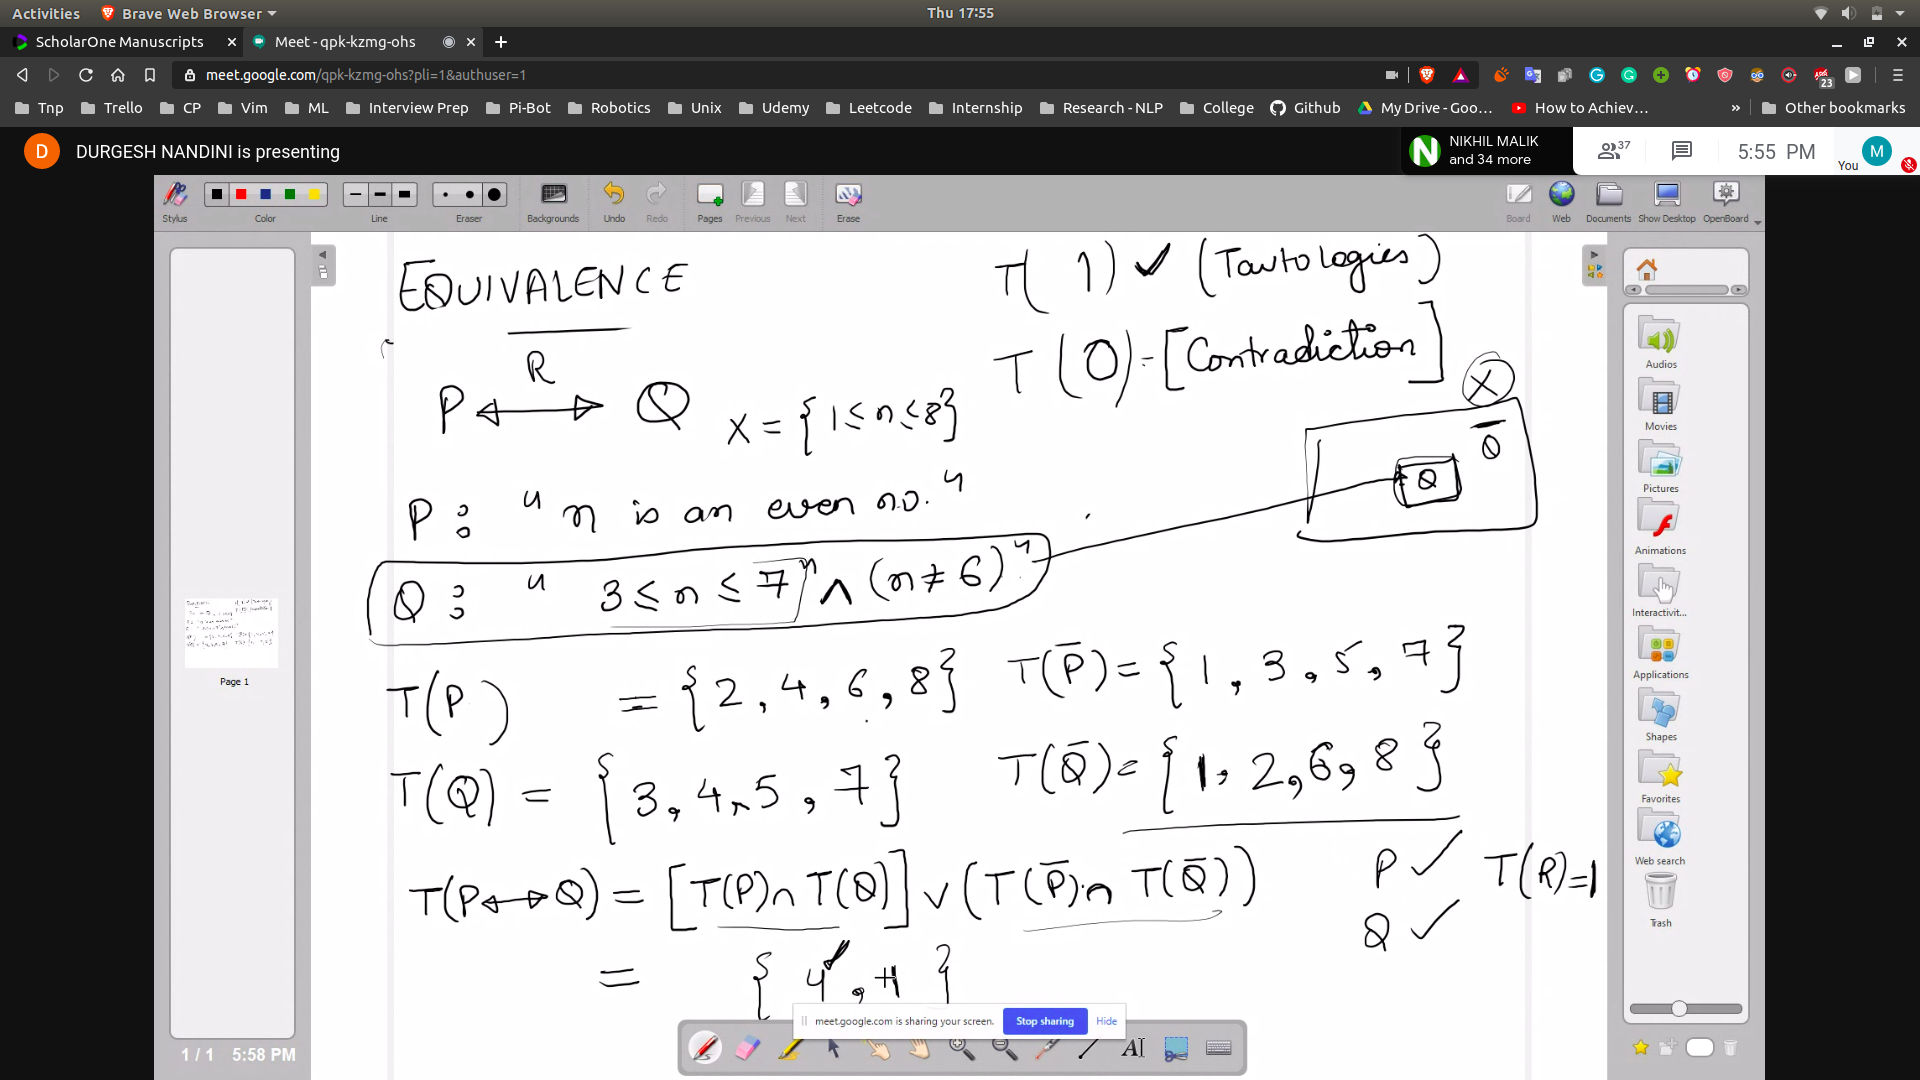 Activities
Brave Web Browser
Thu 17:55
ScholarOne Manuscripts
Meet - qpk-kzmg-ohs
meet.google.com/qpk-kzmg-ohs?pli=1&authuser=1
23
Tnp Trello CP Vim ML Interview Prep Pi-Bot Robotics Unix Udemy Leetcode Internship Research - NLP College Github My Drive - Goo... How to Achiev... » Other bookmarks
D DURGESH NANDINI is presenting
N NIKHIL MALIK
and 34 more
37
5:55 PM
You M
Stylus Color Line Eraser Backgrounds Undo Redo Pages Previous Next Erase Board Web Documents Show Desktop OpenBoard
EQUIVALENCE
T( 1) ✓ (Tautologies)
T (0) = [Contradiction]
R
P ↔ Q
X = {1 ≤ n ≤ 8}
X
Q̅
Q
P : " n is an even no. "
Q : " 3 ≤ n ≤ 7" ∧ (n ≠ 6)"
T(P) = {2, 4, 6, 8}
T(P̅) = {1, 3, 5, 7}
T(Q) = {3, 4, 5, 7}
T(Q̅) = {1, 2, 6, 8}
T(P↔Q) = [T(P) ∩ T(Q)] ∨ (T(P̅) ∩ T(Q̅))
P ✓
T(R)=1
Q ✓
Page 1
Audios
Movies
Pictures
Animations
Interactivit...
Applications
Shapes
Favorites
Web search
Trash
meet.google.com is sharing your screen. Stop sharing Hide
1 / 1 5:58 PM